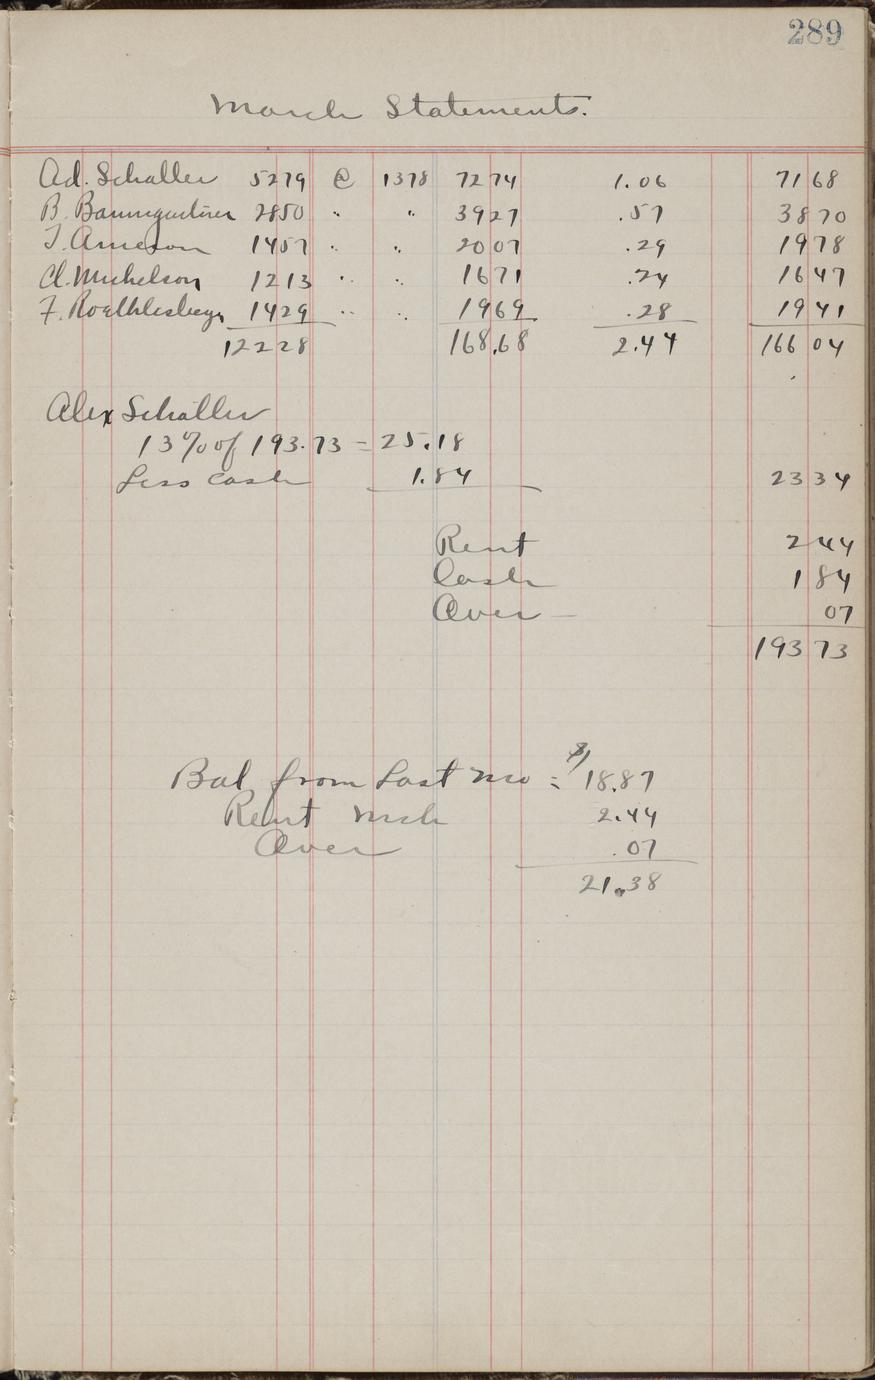 289
March Statements.
Ad. Schaller 5279 @ 1378 72 74 1.06 71 68
B. Baumgartner 2850 " " 39 27 .57 38 70
J. Arneson 1457 " " 20 07 .29 19 78
Cl. Mickelson 1213 " " 16 71 .24 16 47
F. Roethlesberger 1429 " " 19 69 .28 19 41
12228 168.68 2.44 166 04
Alex Schaller
13% of 193.73 = 25.18
Less cash 1.84 23 34
Rent 2 44
Cash 1 84
Over 07
193 73
Bal from Last mo = $18.87
Rent Mch 2.44
Over .07
21.38